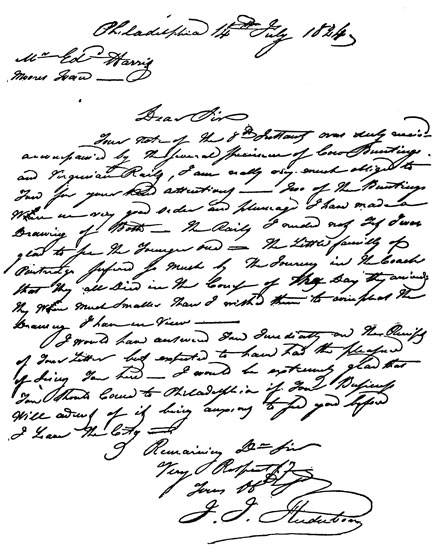 Philadelphia 14th July 1824
Mr Edd Harris
Moores Town —
Dear Sir
Your note of the 8th Instant was duly recd
accompanied by the several specimens of Cow Buntings
and Virginian Rails, I am really very much obliged to
You for your kind attentions — Two of the Buntings
Were in very good order and plumage I have made a
Drawing of Both — the Rails I needed not but I was
glad to see the Younger bird — The Little family of
Partridge suffered so much by the Journey in the Coach
that they all Died in the Course of the Day they arrived
they Were much Smaller than I wished them to compleat the
Drawing I have in View —
I would have answered Your Imediatly on the Receipt
of Your Letter but expected to have had the pleasure
of Seeing You here — I would be extremely glad that
You Should Come to Philadelphia if Your Business
Will admit of it being anxious to see you before
I Leave the City —
I Remaining Dr Sir
Very Respectfy
Yours
J. J. Audubon